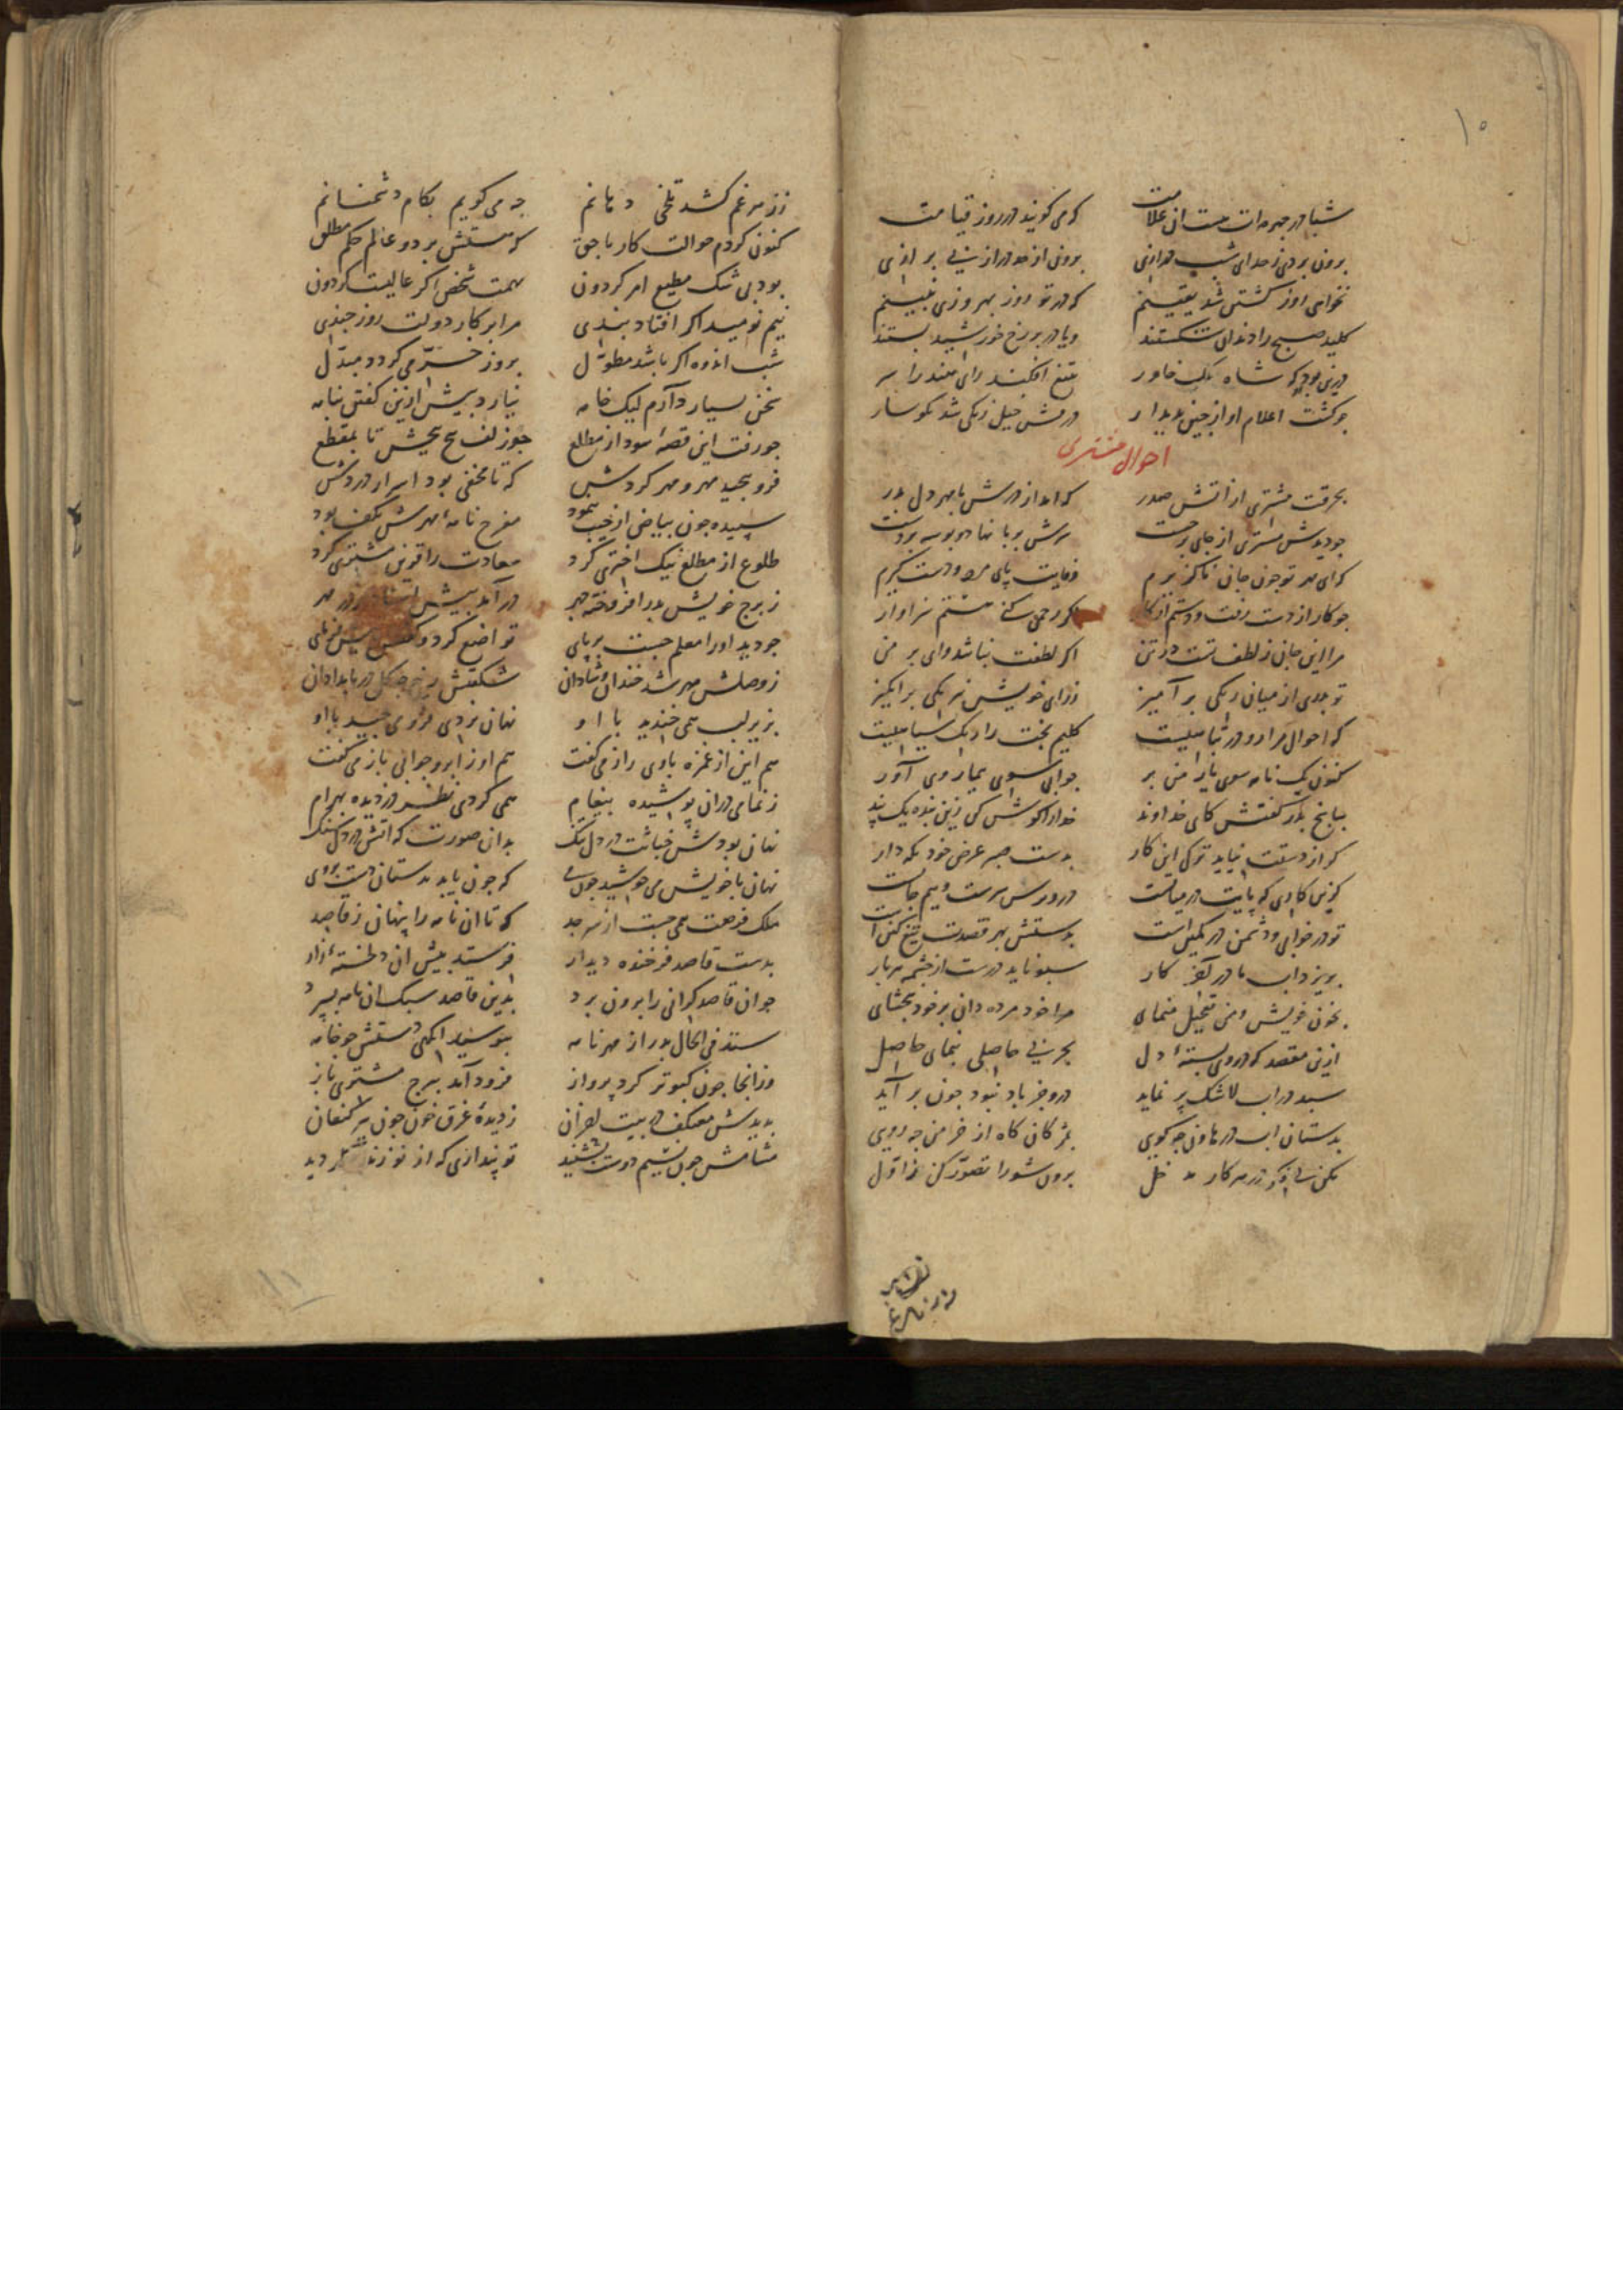 ۱۰
شبا در چهره‌ات هست آن علامت که می گویند در روز قیامت
برون بردی ز حد ای شب درازی برون از خود درازی بر
نخواهی روز گشتن شد یقینم که در تو روز بهروزی نبینم
کلید صبح را دندان شکستند و یا در بر رخ خورشید بستند
درین بود او که شاه نیک خاور بتیغ افکند رای هند را سر
چو گشت اعلام او از چین پدیدار درفش خیل زنگی شد نگوسار
احوال مشتری
بحرقت مشتری از آتش صدر که آمد از درش با مهر دل بدر
چو دیدش مشتری از جای برجست سرش بر پا نهاد و بوسه بر دست
که ای مهر تو چون جان ناگزیرم ز عنایت پای مرد و دستگیرم
چو کار از دست رفت و دستم از کار اگر رحمی کنی هستم سزاوار
مرا این جان ز لطف تست در تن اگر لطفت نباشد وای بر من
تو جدی از میان رنگی بر آمیز ز رای خویش نیرنگی بر انگیز
که احوال مرا رو در تباهیست گلیم بخت را رنگ سیاهیست
کنون یک نامه سوی یار من بر جوابی سوی بیمار وی آور
بپاسخ بدر گفتش کای خداوند خدا را گوش کن زین بنده یک پند
گر از دستت نیاید ترک این کار بدست صبر عرض خود نگه دار
تو در خوابی و دشمن در کمین است بدستش بهر قصدت تیغ کین است
بریز داب ما در آخر کار سبو ناید درست از چشمه هر بار
بخون خویش و من تعجیل منمای مرا خود مرده دان بر خود ببخشای
ازین مقصد که در وی بسته‌ای دل بجز بی حاصلی بنمای حاصل
سبد در آب لاشک پر نماید درو جز باد نبود چون بر آید
بدستان آب در هاون چه کوبی بمژگان کاه از خرمن چه روبی
مکن بی فکر در هر کار مدخل برون شو را تصور کن ز اول
ز زهر غم کشد تلخی دهانم چه می گویم بکام دشمنانم
کنون کردم حوالت کار با حق که هستش بر دو عالم حکم مطلق
بود بی شک مطیع امر گردون بهمت شخص اگر عالیست گردون
نیم نومید اگر افتاد بندی مرا بر کار دولت روز چندی
شب اندوه اگر باشد مطول بروز خرمی گردد مبدل
سخن بسیار دارم لیک خامه نیارد بیش ازین گفتن بنامه
چو رفت این قصه سودا ز مطلع چو زلف پیچ پیچش تا بمقطع
فرو پیچید مهر و مهر کردش که تا مخفی بود اسرار دردش
سپیده چون بیاض از جیب بنمود مفرح نامه مهرش بکف بود
طلوع از مطلع نیک اختری کرد سعادت را قرین مشتری کرد
ز برج خویش بدر افروخته چهر در آمد پیش استاد
چو دید او را معلم جست بر پای تواضع کرد و گفتش پیش
ز وصلش مهر شد خندان و شادان شکفتش رخ چو گل در بامدادان
بزیر لب همی خندید با او نهان بردی فروی با او
هم این از غمزه با وی راز می گفت هم او ز ابرو جوابی باز می گفت
ز نمامی در آن پوشیده پیغام همی کردی نظر دزدیده بهرام
نهان بودش خباثت در دل تنگ بدان صورت که آتش در دل سنگ
نهان با خویش می جوشید چون می که چون یابد بدستان دست بر وی
ملک فرصت همی جست از سر جد که تا آن نامه را پنهان ز قاصد
بدست قاصد فرخنده دیدار فرستد پیش آن دلخسته زار
چو آن قاصد گرانی را برون برد بدین قاصد سبک آن نامه بسپرد
ستد فی الحال بدر از مهر نامه ببوسید آنگهی دستش چو خامه
وز آنجا چون کبوتر کرد پرواز فرود آمد ببرج مشتری باز
بدیدش معتکف در بیت احزان ز دیده غرق خون چون پیر کنعان
مشامش چون نسیم دوست بشنید تو پنداری که از نو زنده گردید
۱۱